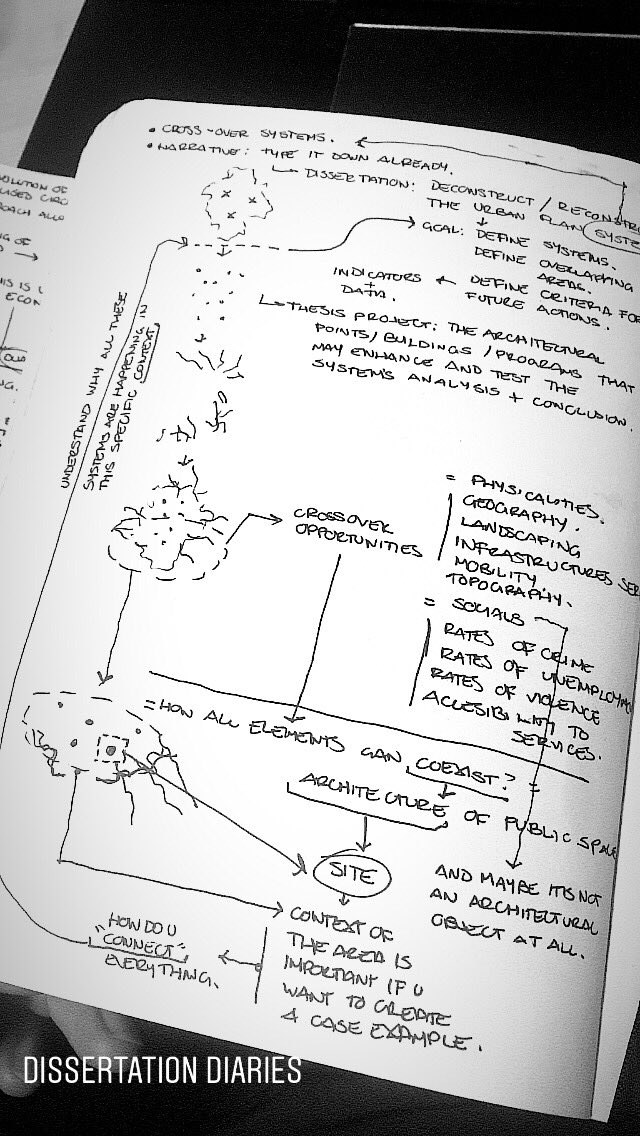 • CROSS-OVER SYSTEMS.
• NARRATIVE: TYPE IT DOWN ALREADY.
DISSERTATION: DECONSTRUCT / RECONSTR
THE URBAN PLAN SYSTE
GOAL: DEFINE SYSTEMS.
DEFINE OVERLAPPING
AREAS.
INDICATORS DEFINE CRITERIA FOR
+ FUTURE ACTIONS.
DATA.
THESIS PROJECT: THE ARCHITECTURAL
POINTS/BUILDINGS/PROGRAMS THAT
MAY ENHANCE AND TEST THE
SYSTEMS ANALYSIS + CONCLUSION.
UNDERSTAND WHY ALL THESE
SYSTEMS ARE HAPPENING IN
THIS SPECIFIC CONTEXT
CROSSOVER
OPPORTUNITIES
= PHYSICALITIES.
GEOGRAPHY.
LANDSCAPING
INFRASTRUCTURES SER
MOBILITY.
TOPOGRAPHY.
= SOCIALS
RATES OF CRIME
RATES OF UNEMPLOYM
RATES OF VIOLENCE
ACCESIBILITY TO
SERVICES.
= HOW ALL ELEMENTS CAN COEXIST? =
ARCHITECTURE OF PUBLIC SPACE
SITE
AND MAYBE IT IS NOT
AN ARCHITECTURAL
OBJECT AT ALL.
CONTEXT OF
THE AREA IS
IMPORTANT IF U
WANT TO CREATE
A CASE EXAMPLE.
HOW DO U
"CONNECT"
EVERYTHING.
DISSERTATION DIARIES